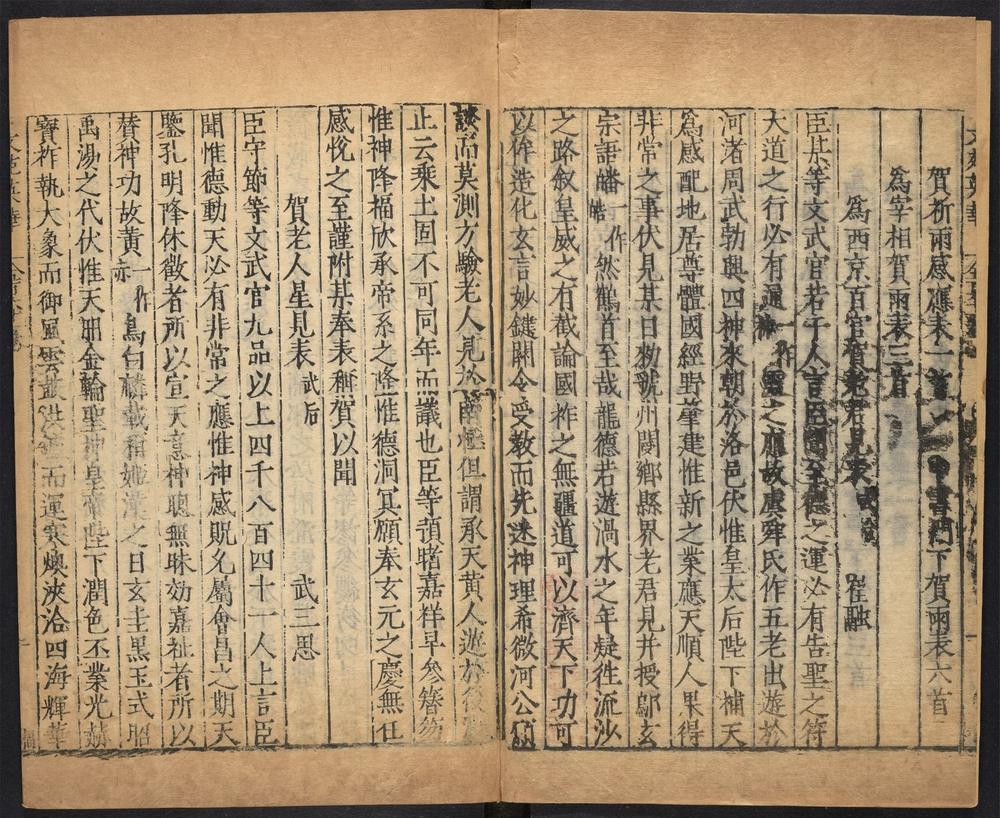 賀祈雨感應表一首 中書門下賀雨表六首
爲宰相賀雨表三首
爲西京百官賀老君見表 崔融
臣某等文武官若干人言臣聞至德之運必有告聖之符
大道之行必有通一作神靈之應故虞舜氏作五老出遊於
河渚周武勃興四神來朝於洛邑伏惟皇太后陛下補天
爲感配地居尊體國經野肇建惟新之業應天順人果得
非常之事伏見某日勑虢州閿鄉縣界老君見并授鄔玄
宗語皤一作皓然鶴首至哉龍德若遊渦水之年疑徃流沙
之路叙皇威之有截論國祚之無疆道可以濟天下功可
以侔造化玄言妙鍵關令受教而先迷神理希微河公
談而莫測方驗老人見於南極但謂承天黄人遊於後
止云乘土固不可同年而議也臣等預睹嘉祥早參簪笏
惟神降福欣承帝系之隆惟德洞冥願奉玄元之慶無任
感悅之至謹附某奉表稱賀以聞
賀老人星見表 武后 武三思
臣守節等文武官九品以上四千八百四十一人上言臣
聞惟德動天必有非常之應惟神感貺允屬會昌之期天
鑒孔明降休徵者所以宣天意神聰無昧効嘉祉者所以
替神功故黄一作赤烏白麟載和姬漢之日玄圭黑玉式昭
禹湯之代伏惟天冊金輪聖神皇帝陛下潤色丕業光赫
寶祚執大象而御風雲鼓洪而運寒燠浹洽四海輝華